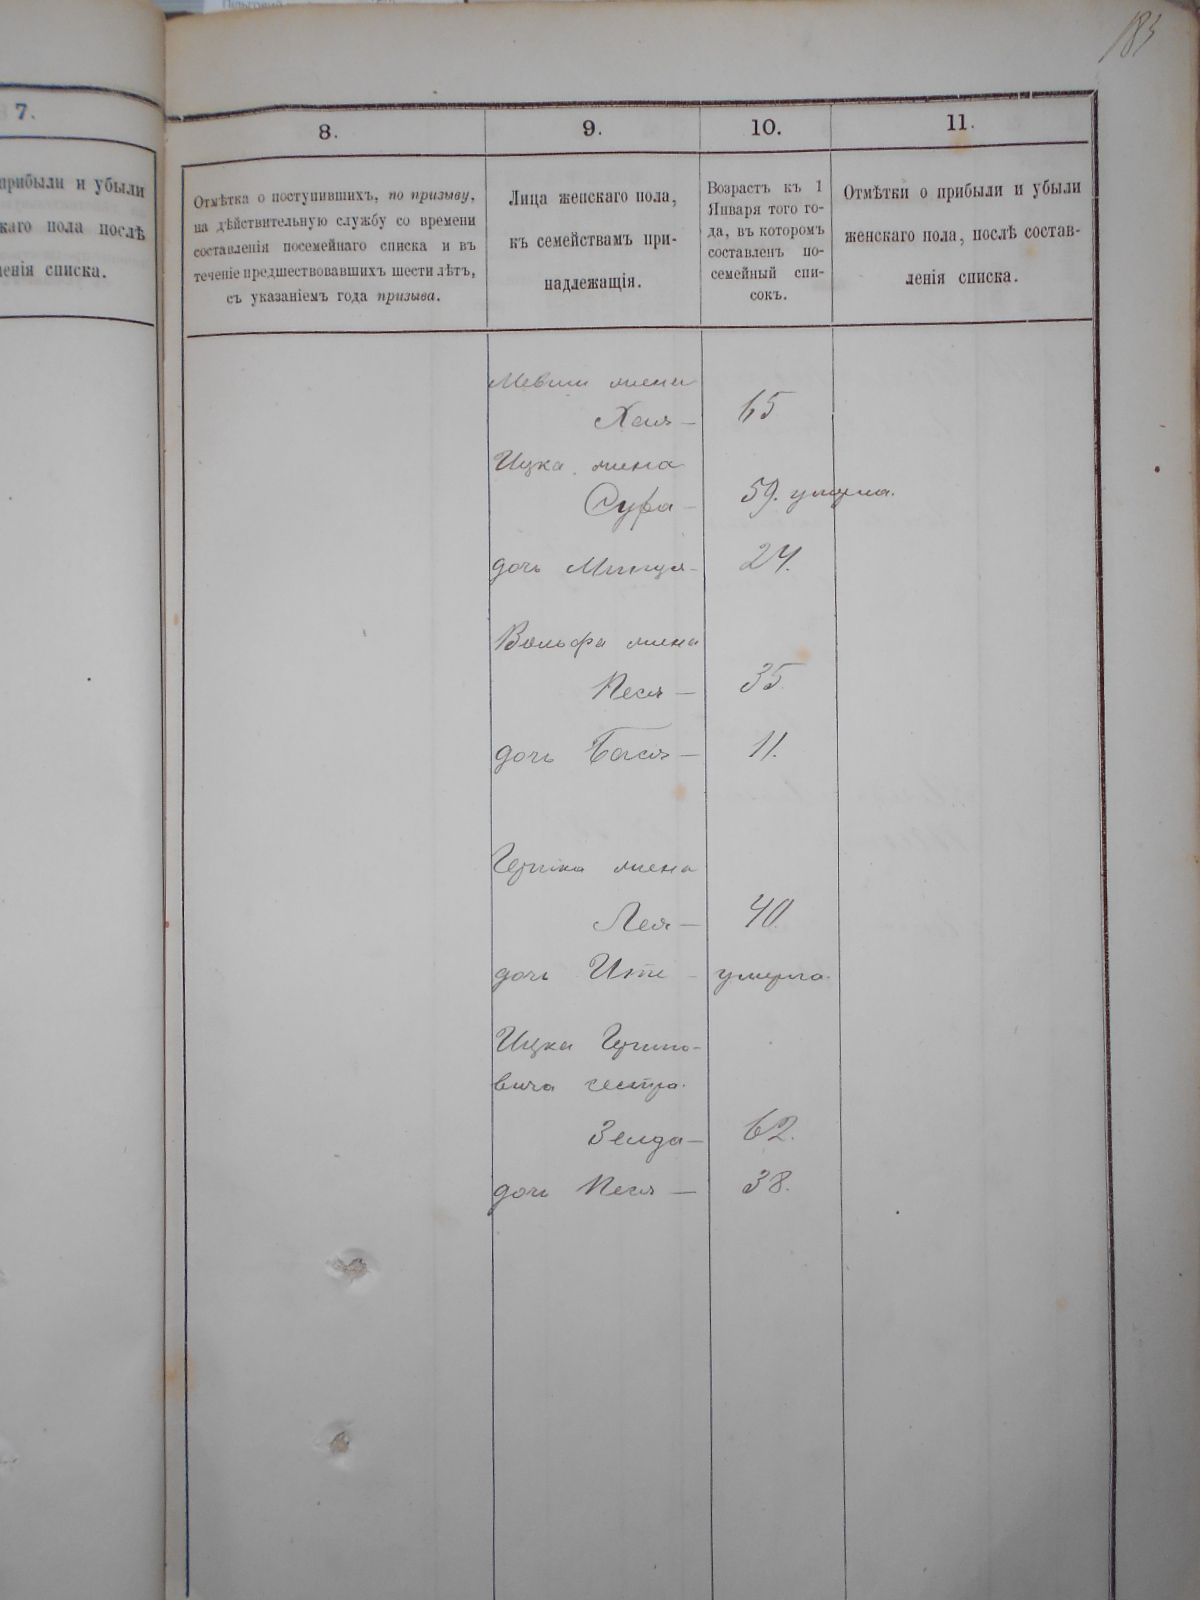 183
7.
прибыли и убыли
каго пола послѣ
ленія списка.
8.
Отмѣтка о поступившихъ, по призыву,
на дѣйствительную службу со времени
составленія посемейнаго списка и въ
теченіе предшествовавшихъ шести лѣтъ,
съ указаніемъ года призыва.
9.
Лица женскаго пола,
къ семействамъ при-
надлежащія.
10.
Возрастъ къ 1
Января того го-
да, въ которомъ
составленъ по-
семейный спи-
сокъ.
11.
Отмѣтки о прибыли и убыли
женскаго пола, послѣ состав-
ленія списка.
жена
Хая — 65
Ицка жена
Сура — 59. умерла.
дочь 24.
Вольфа жена
Песя — 35
дочь Бася — 11.
Гершка жена
Лея — 40
дочь Ите — умерла.
Ицка Гершо-
вича сестра
Зелда — 62.
дочь Песя — 38.